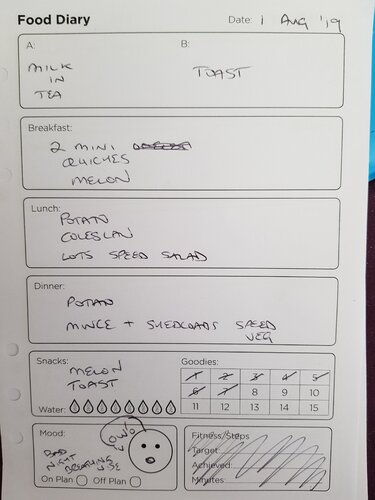 Food Diary
Date: 1 Aug '19
A:
B:
MILK
IN
TEA
TOAST
Breakfast:
2 MINI
QUICHES
MELON
Lunch:
POTATO
COLESLAW
LOTS SPEED SALAD
Dinner:
POTATO
MINCE + SHEDLOADS SPEED
VEG
Snacks:
MELON
TOAST
Goodies:
1 2 3 4 5
6 7 8 9 10
11 12 13 14 15
Water:
Mood:
BAD
NIGHT
BREATHING
WISE
On Plan
Off Plan
Fitness/Steps
Target:
Achieved:
Minutes